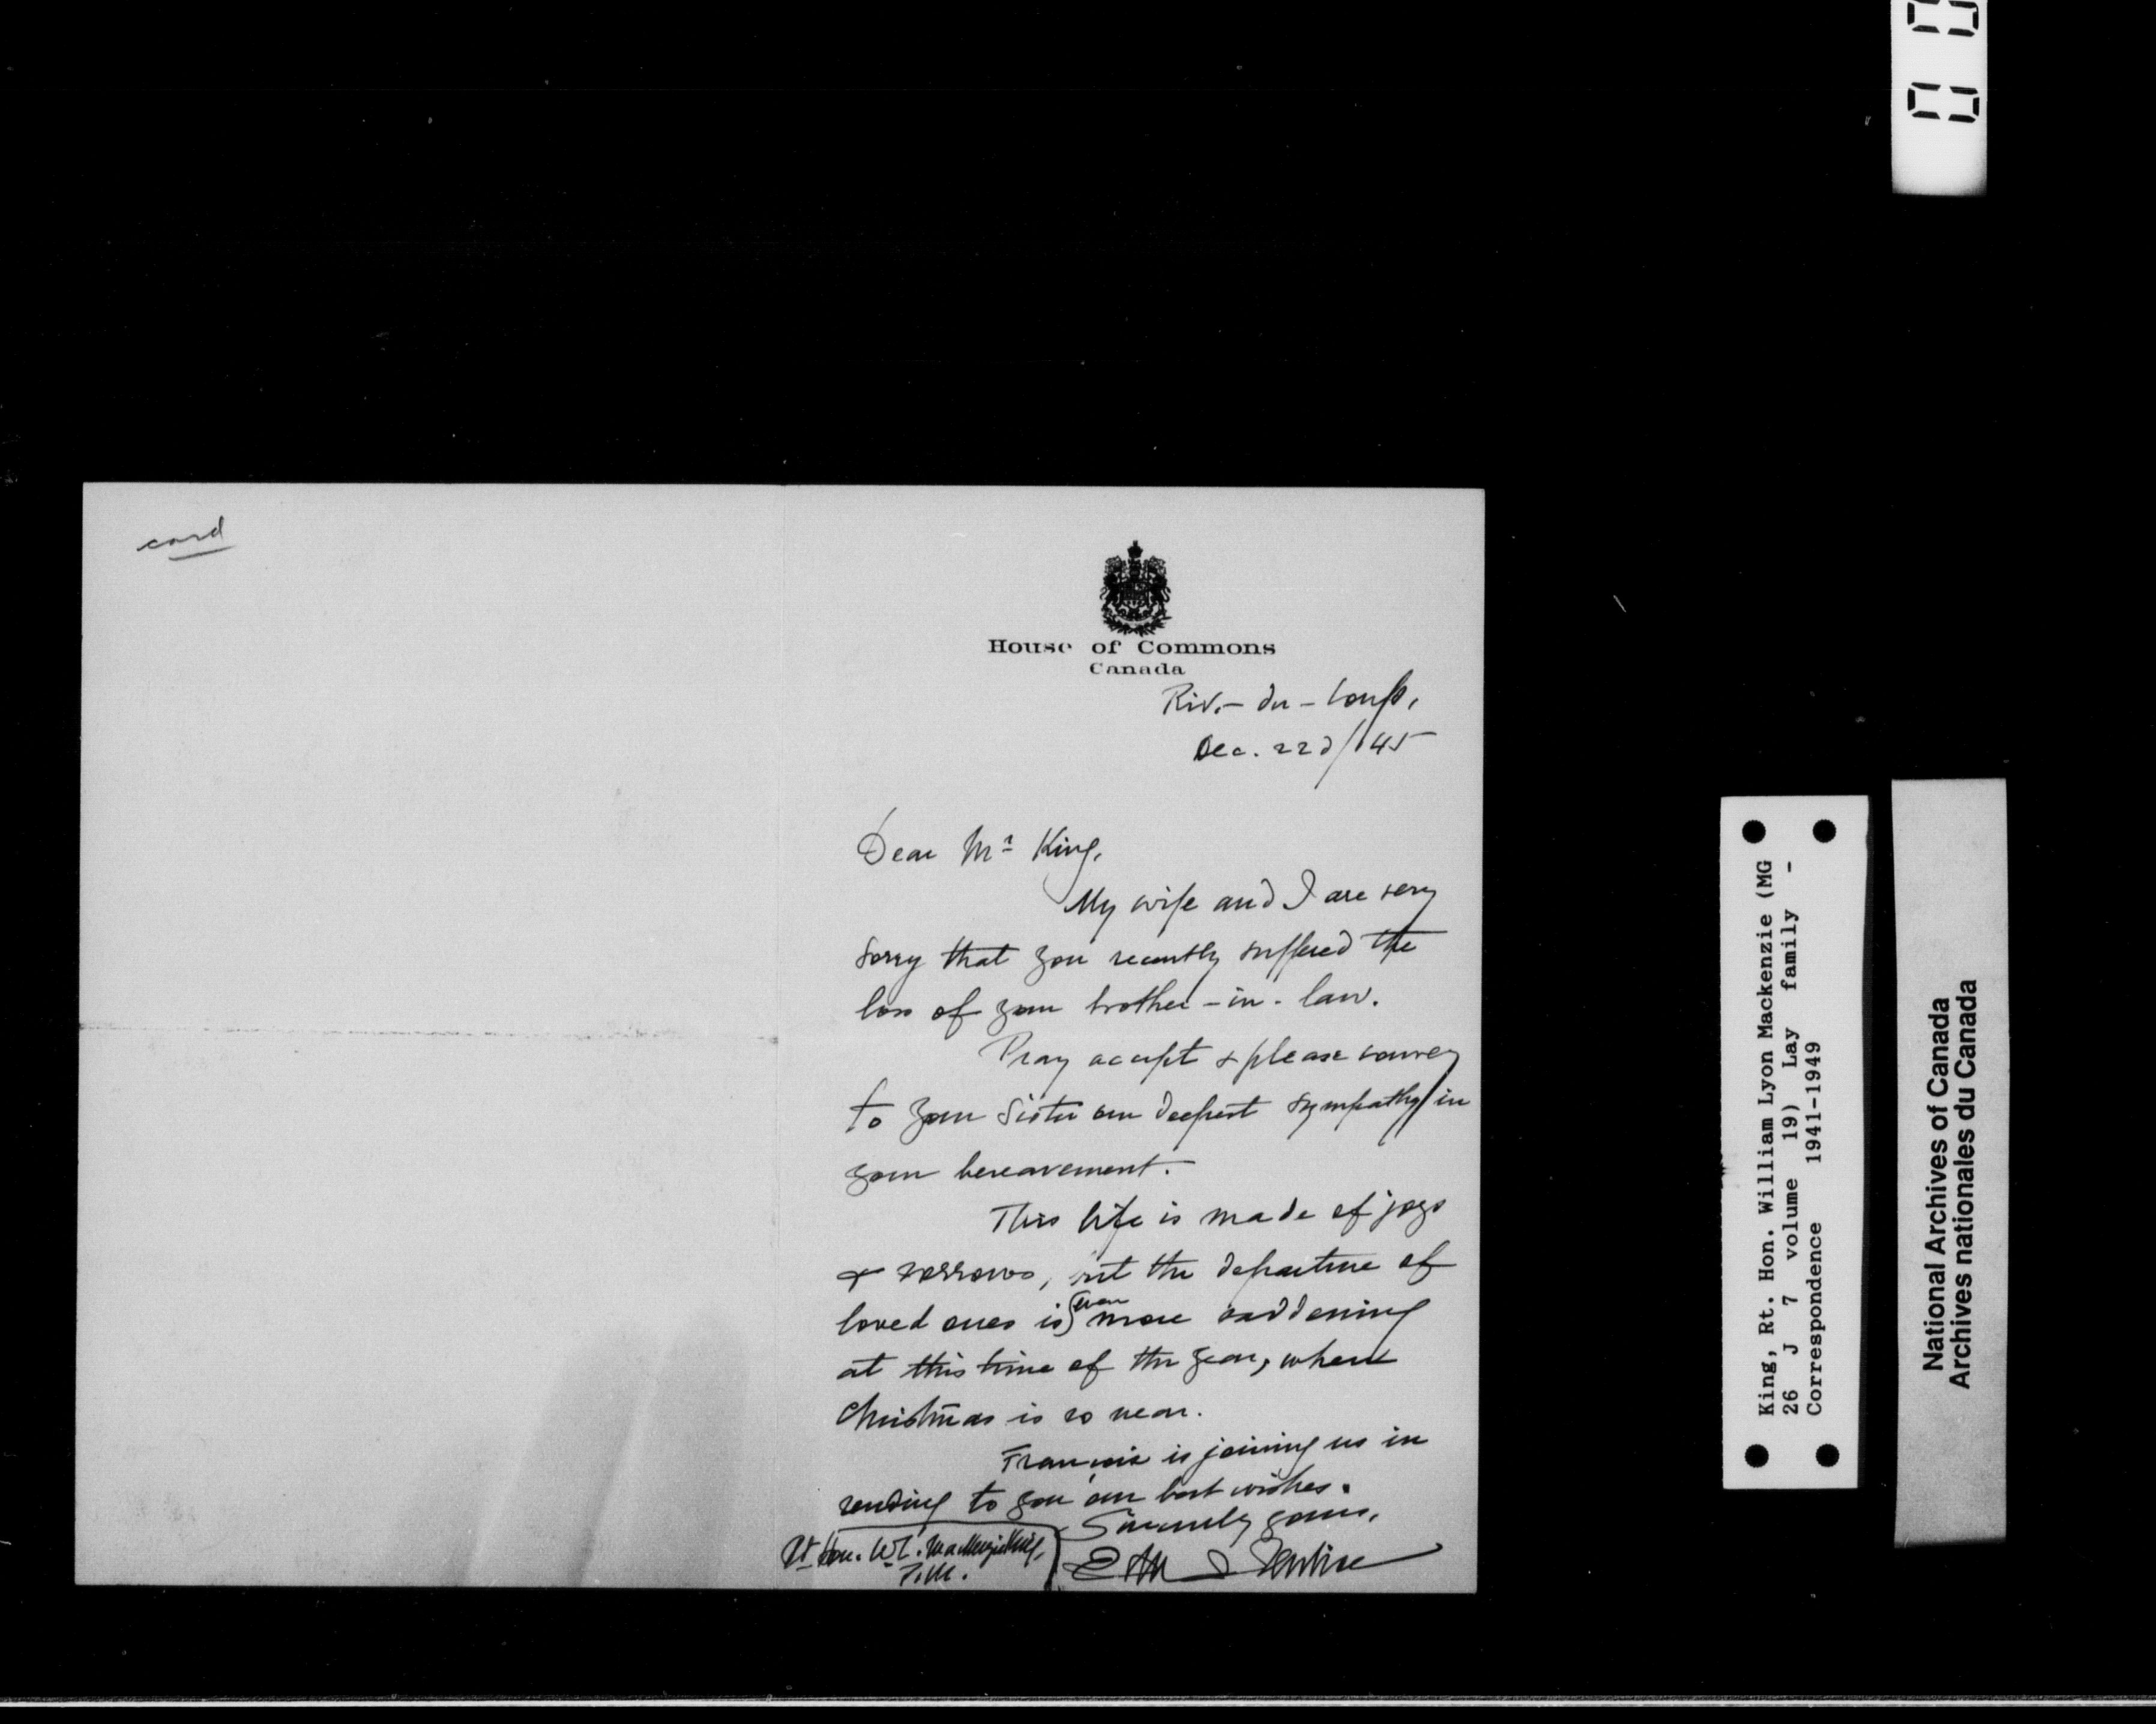 card
House of Commons
Canada
Riv.-du-Loup,
Dec. 22d/45
Dear Mr King,
My wife and I are very
sorry that you recently suffered the
loss of your brother-in-law.
Pray accept & please convey
to your sister our deepest sympathy in
your bereavement.
This life is made of joys
& sorrows, but the departure of
loved ones is even more saddening
at this time of the year, when
Christmas is so near.
François is joining us in
sending to you our best wishes.
Sincerely yours,
Rt Hon. W.L. Mackenzie King,
P.M.
King, Rt. Hon. William Lyon Mackenzie (MG
26 J 7 volume 19) Lay family -
Correspondence 1941-1949
National Archives of Canada
Archives nationales du Canada